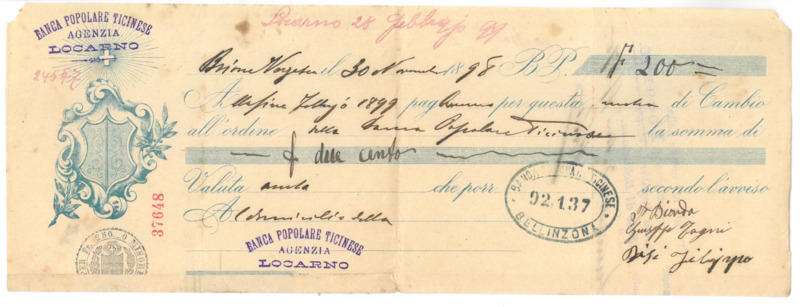 Locarno 28 febbrajo 99
BANCA POPOLARE TICINESE
AGENZIA
LOCARNO
24597
Brione Verzasca il 30 Novembre 1898 B.P. F 200 =
Al fine febbrajo 1899 pagheremo per questa di Cambio
all'ordine della Banca Popolare Ticinese la somma di
f duecento
Valuta avuta che porr secondo l'avviso
Al domicilio della
BANCA POPOLARE TICINESE
AGENZIA
LOCARNO
37648
BANCA POPOLARE TICINESE
92.1.37
BELLINZONA
Giuseppe
Filippo